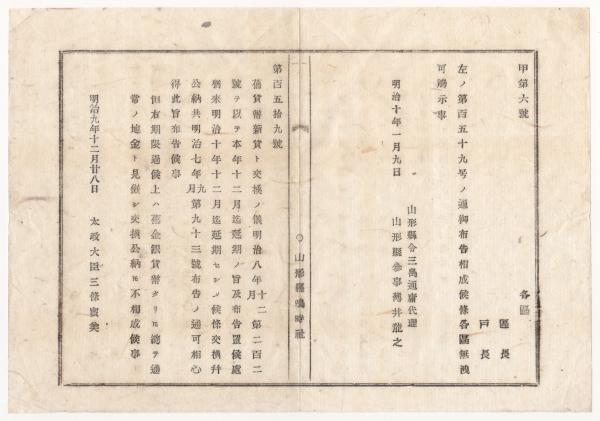 甲第六號
各區
區長
戸長
左ノ第百五十九号ノ通御布告相成候條各區無洩
可觸示事
明治十年一月九日
山形縣令三島通庸代理
山形縣參事薄井龍之
○山形縣鳴時社
第百五拾九號
舊貨幣新貨ト交換ノ儀明治八年十二月第二百二
號ヲ以テ本年十二月迄延期ノ旨及布告置候處
猶來明治十年十二月迄延期セシメ候條交換幷
公納共明治七年九月第九十三號布告ノ通可相心
得此旨布告候事
但右期限過候上ハ舊金銀貨幣タリトモ總テ通
常ノ地金ト見做シ交換公納トモ不相成候事
明治九年十二月廿八日
太政大臣三條實美